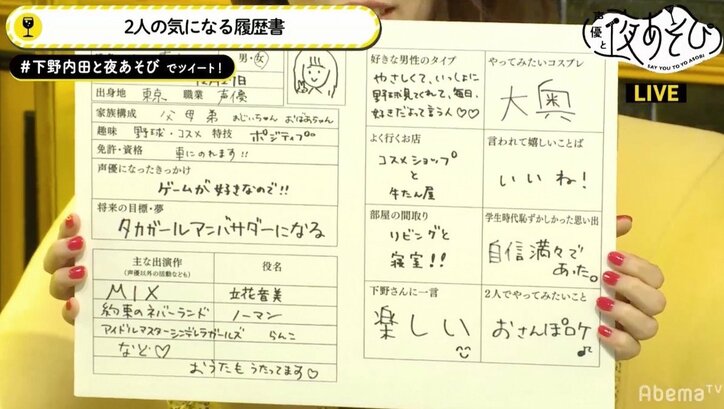 2人の気になる履歴書
#下野内田と夜あそび でツイート!
声優と夜あそび
SAY YOU TO YO ASOBI
LIVE
男・女
12月27日
出身地 東京 職業 声優
家族構成 父 母 弟 おじいちゃん おばあちゃん
趣味 野球・コスメ 特技 ポジティブ
免許・資格 車にのれます!!
声優になったきっかけ
ゲームが好きなので!!
将来の目標・夢
タカガールアンバサダーになる
主な出演作
(声優以外の活動なども)
役名
MIX 立花音美
約束のネバーランド ノーマン
アイドルマスターシンデレラガールズ らんこ
など♡
おうたもうたってます♡
好きな男性のタイプ
やさしくて、いっしょに
野球見てくれて、毎日、
好きだよって言う人♡♡
よく行くお店
コスメショップ
と
牛たん屋
部屋の間取り
リビングと
寝室!!
下野さんに一言
楽しい
やってみたいコスプレ
大奥
言われて嬉しいことば
いいね!
学生時代恥ずかしかった思い出
自信満々で
あった。
2人でやってみたいこと
おさんぽロケ♪
AbemaTV